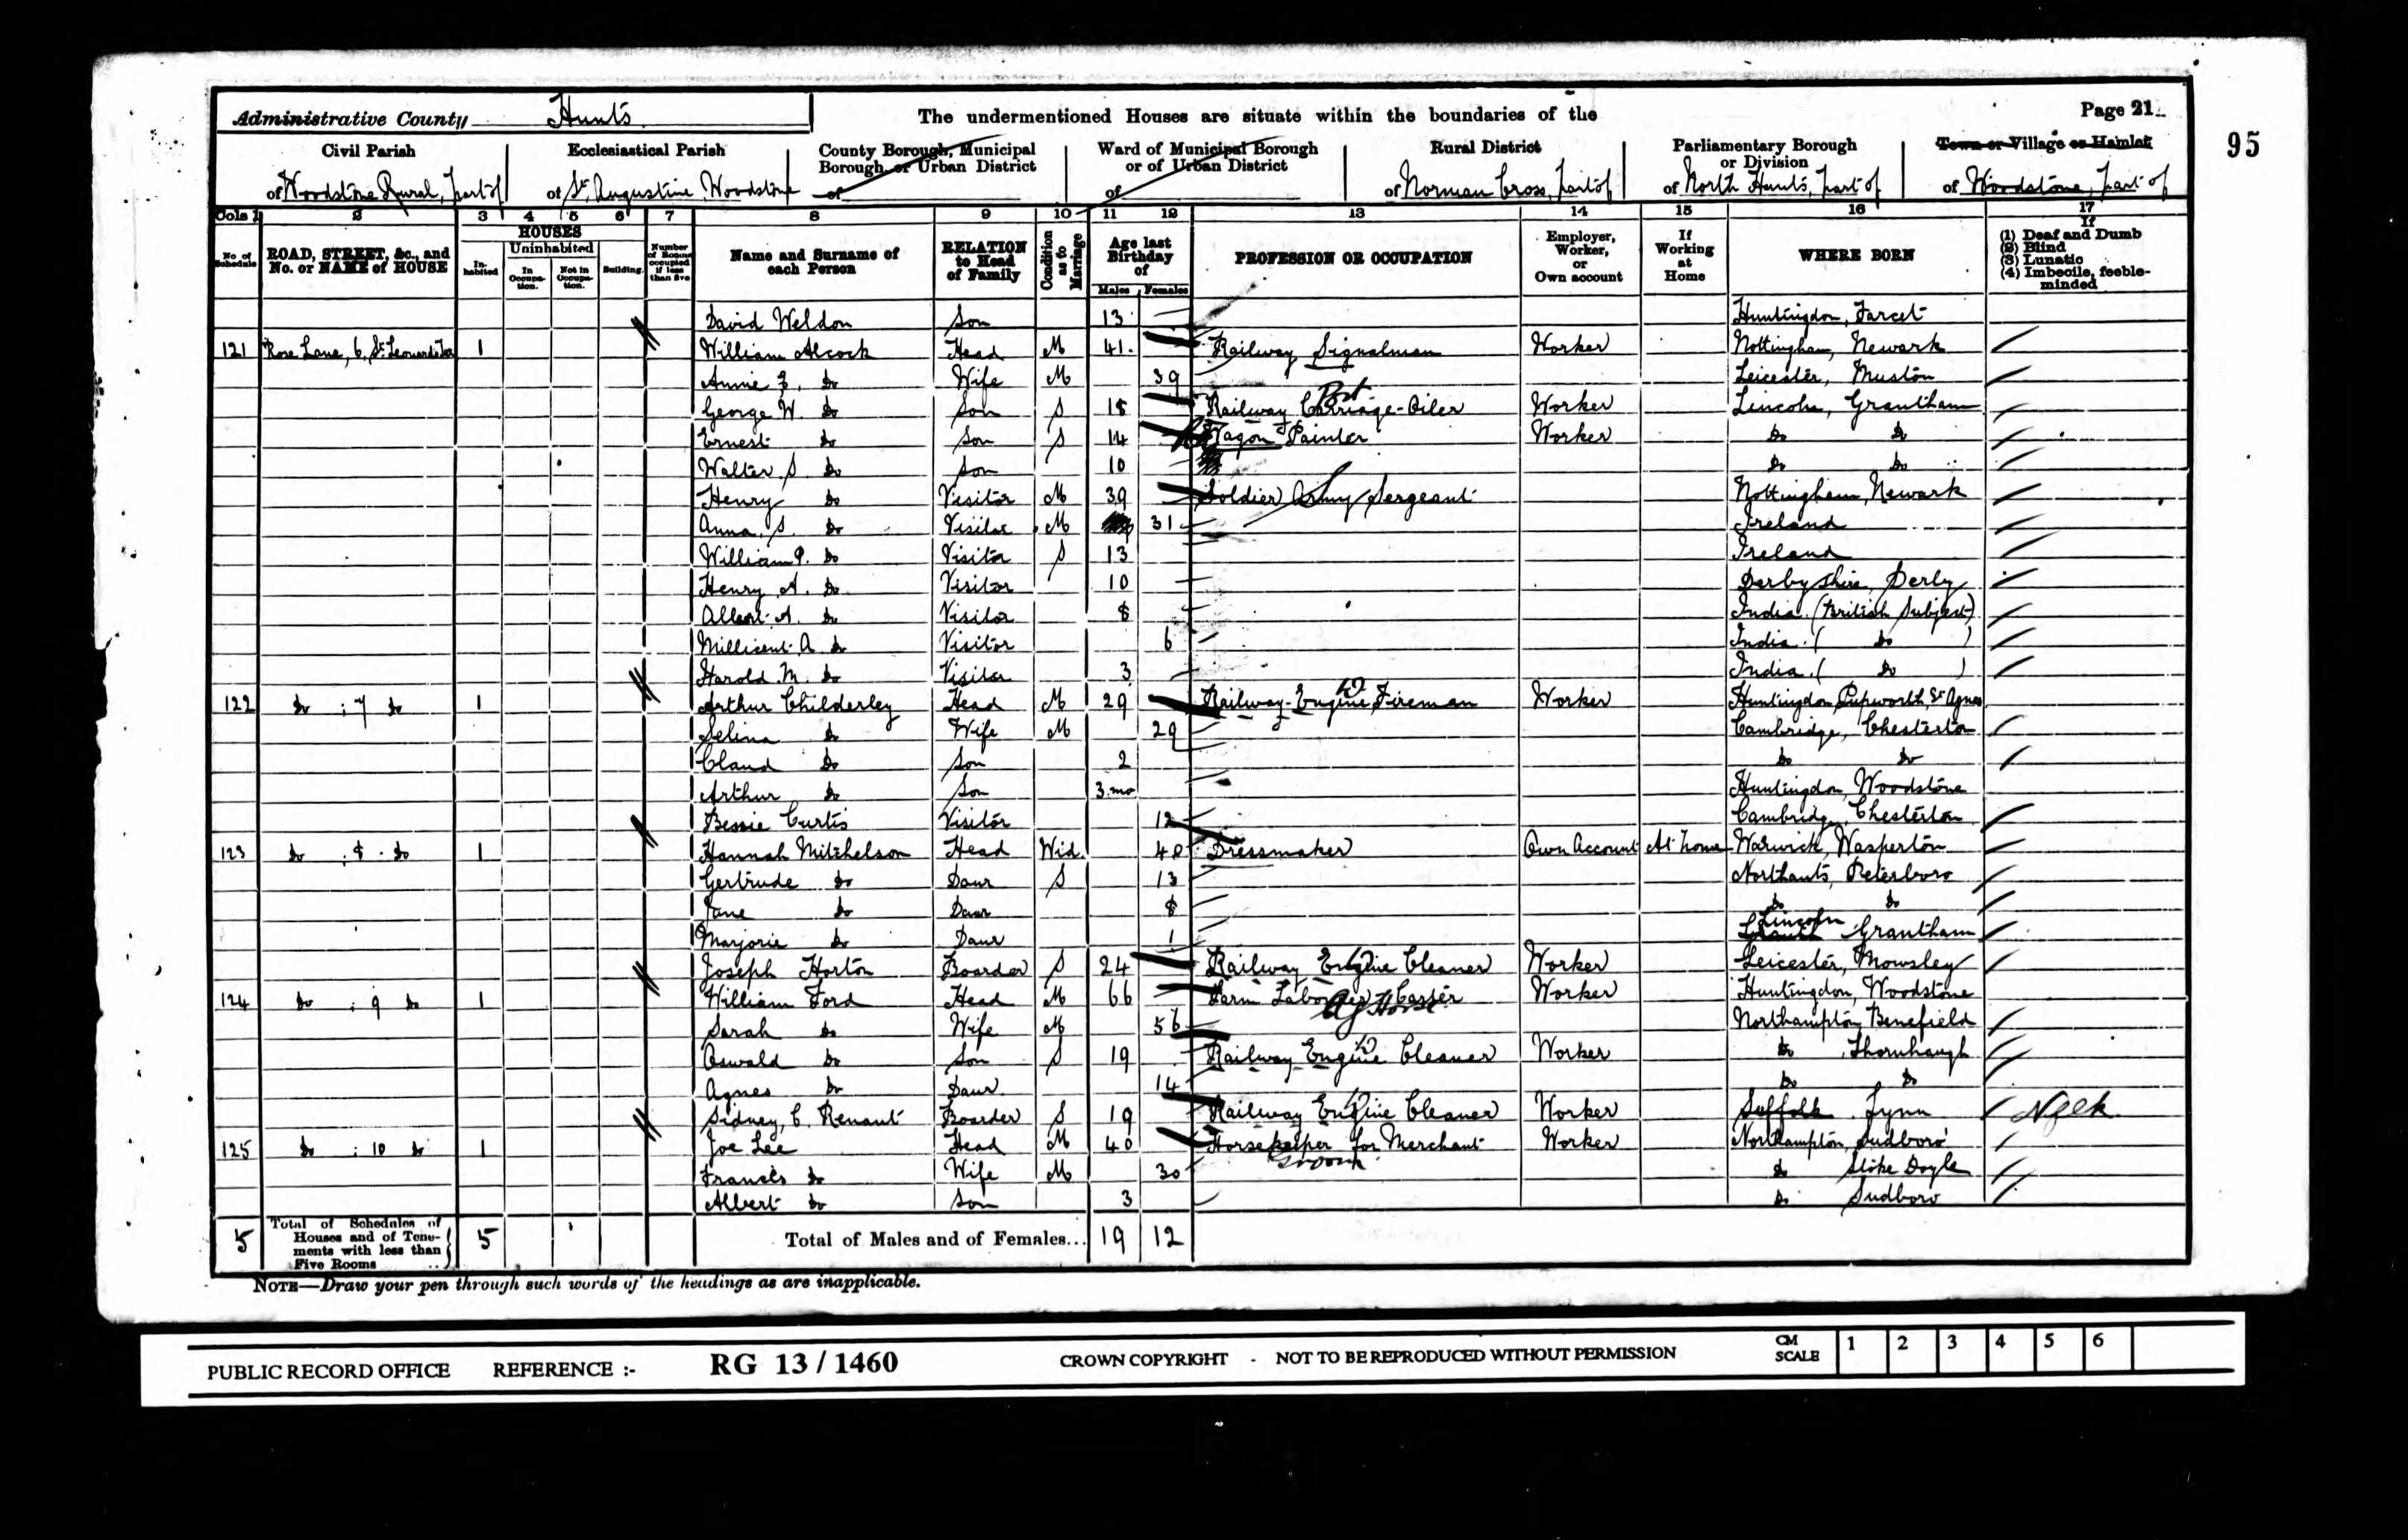 Administrative County Hunts
The undermentioned Houses are situate within the boundaries of the
Page 21
95
Civil Parish
of Woodstone Rural, part of
Ecclesiastical Parish
of St. Augustine, Woodstone
County Borough, Municipal
Borough or Urban District
of
Ward of Municipal Borough
or of Urban District
of
Rural District
of Norman Cross, part of
Parliamentary Borough
or Division
of North Hunts, part of
Town or Village or Hamlet
of Woodstone, part of
Cols 1 2 3 4 5 6 7 8 9 10 11 12 13 14 15 16 17
No. of Schedule
ROAD, STREET, &c., and No. or NAME of HOUSE
HOUSES
In-habited
Uninhabited
In Occupa-tion.
Not in Occupa-tion.
Building.
Number of Rooms occupied if less than five
Name and Surname of each Person
RELATION to Head of Family
Condition as to Marriage
Age last Birthday of
Males Females
PROFESSION OR OCCUPATION
Employer, Worker, or Own account
If Working at Home
WHERE BORN
If
(1) Deaf and Dumb
(2) Blind
(3) Lunatic
(4) Imbecile, feeble-minded
David Weldon Son 13 Huntingdon, Farcet
121 Rose Lane, 6, St. Leonards Ter 1 William Alcock Head M 41 Railway Signalman Worker Nottingham, Newark
Annie F. Do Wife M 39 Leicester, Muston
George W. Do Son S 18 Railway Carriage-Oiler Worker Lincoln, Grantham
Ernest Do Son S 14 Wagon Painter Worker Do Do
Walter S. Do Son 10 Do Do
Henry Do Visitor M 39 Soldier Army Sergeant Nottingham, Newark
Anna S. Do Visitor M 31 Ireland
William P. Do Visitor S 13 Ireland
Henry A. Do Visitor 10 Derbyshire, Derby
Albert A. Do Visitor 8 India (British Subject)
Millicent A Do Visitor 6 India ( Do )
Harold M. Do Visitor 3 India ( Do )
122 Do ; 7 Do 1 Arthur Childerley Head M 29 Railway-Engine Fireman Worker Huntingdon, Papworth St Agnes
Selina Do Wife M 29 Cambridge, Chesterton
Claud Do Son 2 Do Do
Arthur Do Son 3 mo Huntingdon, Woodstone
Bessie Curtis Visitor 12 Cambridge, Chesterton
123 Do ; 8 Do 1 Hannah Mitchelson Head Wid. 40 Dressmaker Own Account At home Warwick, Wasperton
Gertrude Do Daur S 13 Northants, Peterboro
Jane Do Daur 8 Do Do
Marjorie Do Daur 1 Lincoln Grantham
Joseph Horton Boarder S 24 Railway Engine Cleaner Worker Leicester, Mowsley
124 Do ; 9 Do 1 William Ford Head M 66 Farm Laborer Worker Huntingdon, Woodstone
Ag Horse
Sarah Do Wife M 56 Northampton, Benefield
Oswald Do Son S 19 Railway Engine Cleaner Worker Do Thornhaugh
Agnes Do Daur 14 Do Do
Sidney, C. Renaut Boarder S 19 Railway Engine Cleaner Worker Suffolk Lynn Nflk
125 Do ; 10 Do 1 Joe Lee Head M 40 Horsekeeper for Merchant Worker Northampton, Sudboro'
Groom
Francis Do Wife M 30 Do Stoke Doyle
Albert Do Son 3 Do Sudboro
5 Total of Schedules of Houses and of Tene-ments with less than Five Rooms 5 Total of Males and of Females... 19 12
NOTE—Draw your pen through such words of the headings as are inapplicable.
PUBLIC RECORD OFFICE REFERENCE :- RG 13 / 1460 CROWN COPYRIGHT - NOT TO BE REPRODUCED WITHOUT PERMISSION CM SCALE 1 2 3 4 5 6